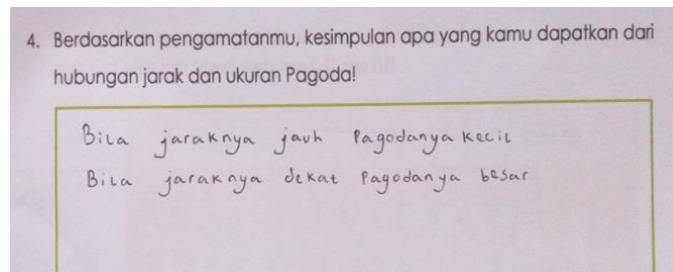 4. Berdasarkan pengamatanmu, kesimpulan apa yang kamu dapatkan dari
hubungan jarak dan ukuran Pagoda!
Bila jaraknya jauh Pagodanya kecil
Bila jaraknya dekat Pagodanya besar